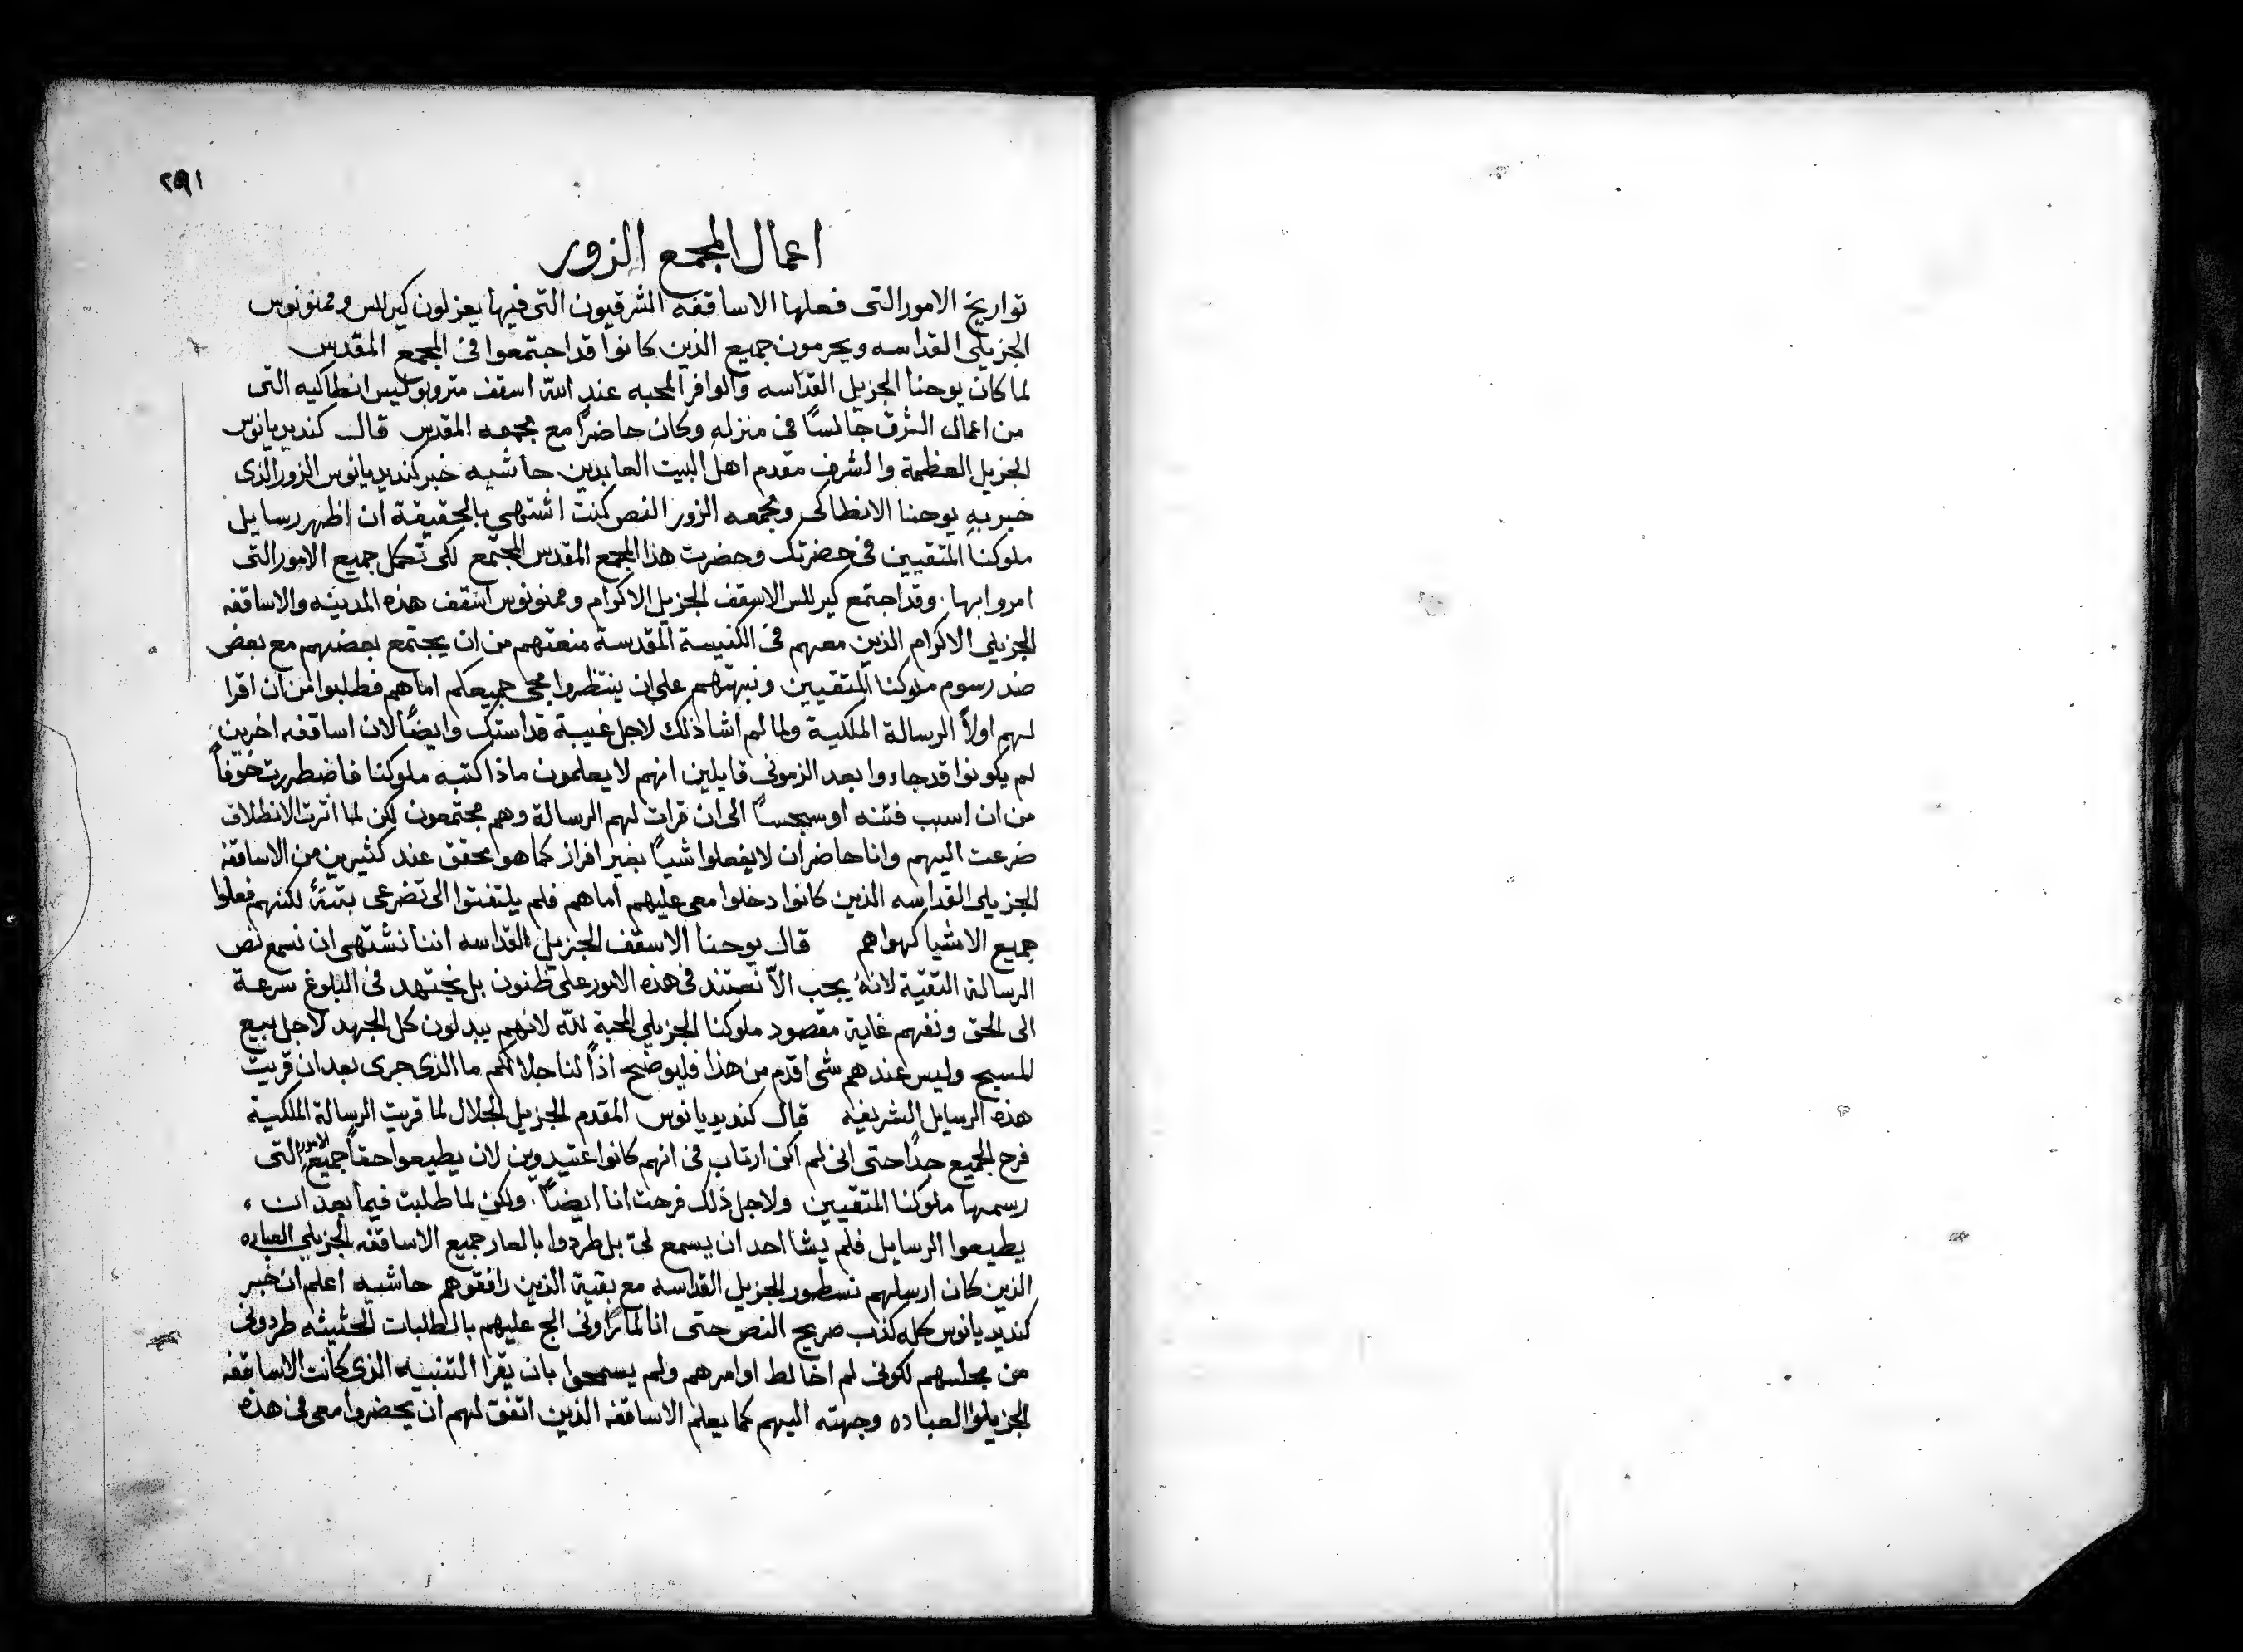 ٢٩١
اعمال المجمع الزور
تواريخ الامور التى فعلها الاساقفه الشرقيون التى فيها يعزلون كيرللس وممنونوس
الجزيلى القداسه ويحرمون جميع الذين كانوا قد اجتمعوا فى المجمع المقدس
لما كان يوحنا الجزيل القداسه والوافر المحبه عند الله اسقف متروبوليس انطاكيه التى
من اعمال الشرق جالسًا فى منزله وكان حاضرًا مع مجمعه المقدس قال كنديديانوس
الجزيل العظمة والشرف مقدم اهل البيت العابدين حاشيه خبر كنديديانوس الزور الذى
خبر به يوحنا الانطاكى ومجمعه الزور النص كنت اشتهى بالحقيقة ان اظهر رسايل
ملوكنا المتقيين فى حضرتك وحضرت هذا المجمع المقدس المجتمع لكى تكمل جميع الامور التى
امروا بها . وقد اجتمع كيرللس الاسقف الجزيل الاكرام وممنونوس اسقف هذه المدينه والاساقفه
الجزيلى الاكرام الذين معهم فى الكنيسة المقدسة منعتهم من ان يجتمع بعضهم مع بعض
ضد رسوم ملوكنا المتقيين ونبهتهم على ان ينتظروا مجى جميعكم اما هم فطلبوا من ان اقرا
لهم اولاً الرسالة الملكية ولما لم اشا ذلك لاجل غيبة قداستك وايضًا لان اساقفه اخرين
لم يكونوا قد جاءوا بعد الزمونى قايلين انهم لا يعلمون ماذا كتبه ملوكنا فاضطررت خوفاً
من ان اسبب فتنه او سجسًا الى ان قرات لهم الرسالة وهم مجتمعون لكن لما اثرت الانطلاق
ضرعت اليهم وانا حاضر ان لا يفعلوا شيًا بغير افراز كما هو محقق عند كثيرين من الاساقفه
الجزيلى القداسه الذين كانوا دخلوا معى عليهم اما هم فلم يلتفتوا الى تضرعى بتةً لكنهم فعلوا
جميع الاشيا كهواهم قال يوحنا الاسقف الجزيل القداسه اننا نشتهى ان نسمع نص
الرسالة التقية لانه يجب الاّ نستند فى هذه الامور على ظنون بل نجتهد فى البلوغ سرعة
الى الحق ونفهم غاية مقصود ملوكنا الجزيلى المحبة لله لانهم يبدلون كل الجهد لاجل بيع
المسيح وليس عندهم شى اقدم من هذا فليوضح اذاً لنا جلالكم ما الذى جرى بعد ان قريت
هذه الرسايل الشريفيه قال كنديديانوس المقدم الجزيل الجلال لما قريت الرسالة الملكية
فرح الجميع جدًا حتى انى لم اكن ارتاب فى انهم كانوا عتيدين لان يطيعوا حقاً جميع الامور التى
رسمها ملوكنا المتقيين ولاجل ذلك فرحت انا ايضًا . ولكن لما طلبت فيما بعد ان
يطيعوا الرسايل فلم يشا احد ان يسمع لى بل طردوا بالعار جميع الاساقفه الجزيلى العباده
الذين كان ارسلهم نسطور الجزيل القداسه مع بقية الذين رافقوهم حاشيه اعلم ان خبر
كنديديانوس كله كذب صريح النص حتى انا لما راونى الح عليهم بالطلبات الحثيثه طردونى
من مجلسهم لكونى لم اخالط اوامرهم ولم يسمحوا بان يقرا التنبيه الذى كانت الاساقفه
الجزيلوا العباده وجهته اليهم كما يعلم الاساقفه الذين اتفق لهم ان يحضروا معى فى هذه